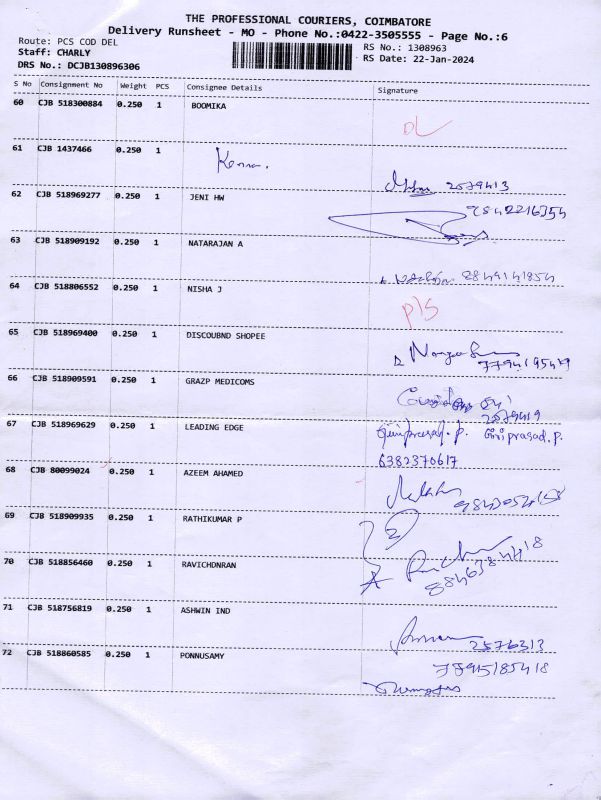 THE PROFESSIONAL COURIERS, COIMBATORE
Delivery Runsheet - MO - Phone No.:0422-3505555 - Page No.:6
Route: PCS COD DEL
RS No.: 1308963
Staff: CHARLY
RS Date: 22-Jan-2024
DRS No.: DCJB130896306
S No Consignment No Weight PCS Consignee Details Signature
60 CJB 518300884 0.250 1 BOOMIKA
DL
61 CJB 1437466 0.250 1
2579413
62 CJB 518969277 0.250 1 JENI HW
9842216354
63 CJB 518909192 0.250 1 NATARAJAN A
64 CJB 518806552 0.250 1 NISHA J
P/S
65 CJB 518969400 0.250 1 DISCOUBND SHOPEE
66 CJB 518909591 0.250 1 GRAZP MEDICOMS
2579419
67 CJB 518969629 0.250 1 LEADING EDGE
6382370617
68 CJB 80099024 0.250 1 AZEEM AHAMED
69 CJB 518909935 0.250 1 RATHIKUMAR P
70 CJB 518856460 0.250 1 RAVICHDNRAN
71 CJB 518756819 0.250 1 ASHWIN IND
2576313
72 CJB 518860585 0.250 1 PONNUSAMY